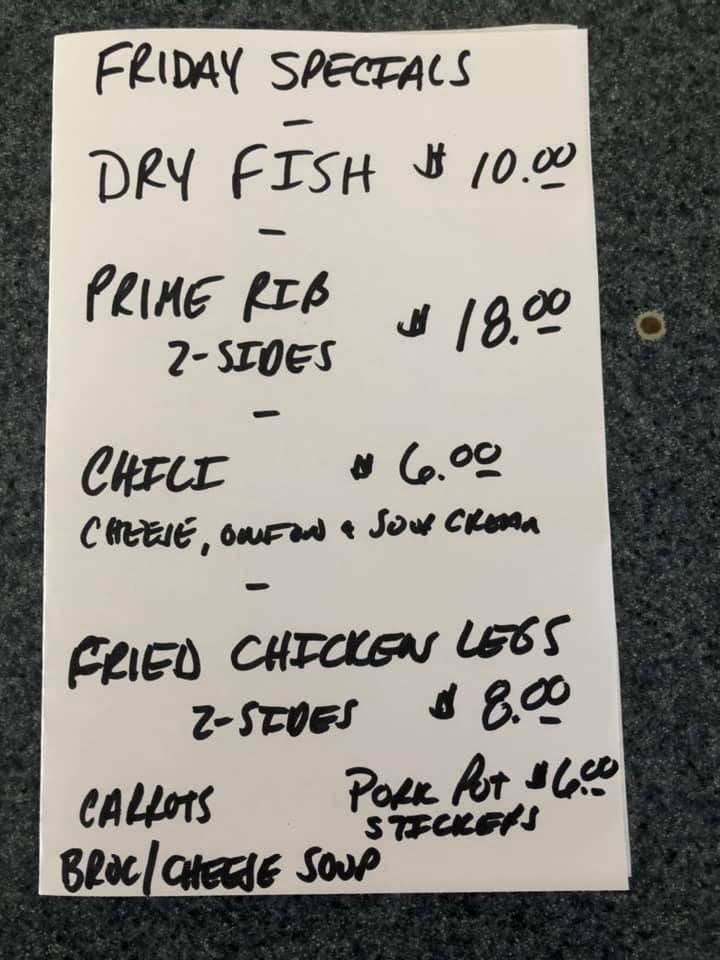 FRIDAY SPECIALS
-
DRY FISH $ 10.00
-
PRIME RIB
2-SIDES $ 18.00
-
CHILI $ 6.00
CHEESE, ONION & SOUR CREAM
-
FRIED CHICKEN LEGS
2-SIDES $ 8.00
CARROTS
PORK POT $6.00
STICKERS
BROC/CHEESE SOUP